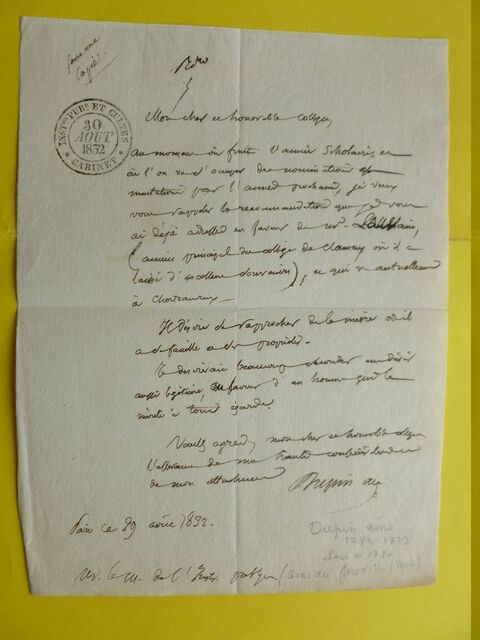 faire une
copie
INST^on PUB^e ET CULTES
30
AOUT
1832
CABINET
Mon cher et honorable collègue,
au moment où finit l'année Scholaire, et
où l'on va s'occuper des nominations et
mutations pour l'année prochaine, je veux
vous rappeler la recommandation que je vous
ai déjà adressée en faveur de Mr.
(ancien principal du collège de Clamecy où il a
laissé d'excellens Souvenirs), et qui est actuellement
à Chateauroux
Il désire se rapprocher de la Nièvre où il
a sa famille et ses propriétés.
Je désirerais beaucoup seconder un désir
aussi légitime, en faveur d'un homme qui le
mérite à tous égards.
Veuillez agréer, mon cher et honorable collègue
l'assurance de ma haute considération et
de mon attachement
Dupin aîné
Paris ce 29 août 1832.
Dupin aîné
Mr. le M. de l'Instr. publique